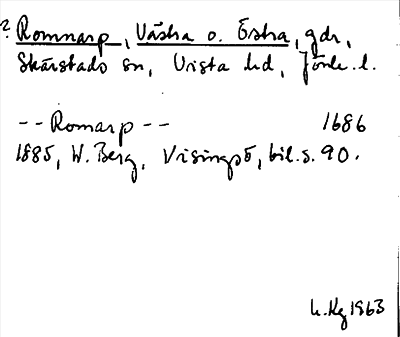 ? Romnarp, Västra o. Östra, gdr,
Skärstads sn, Vista hd, Jönk. l.
-- Romarp -- 1686
1885, W. Berg, Visingsö, bil. s. 90.
1963